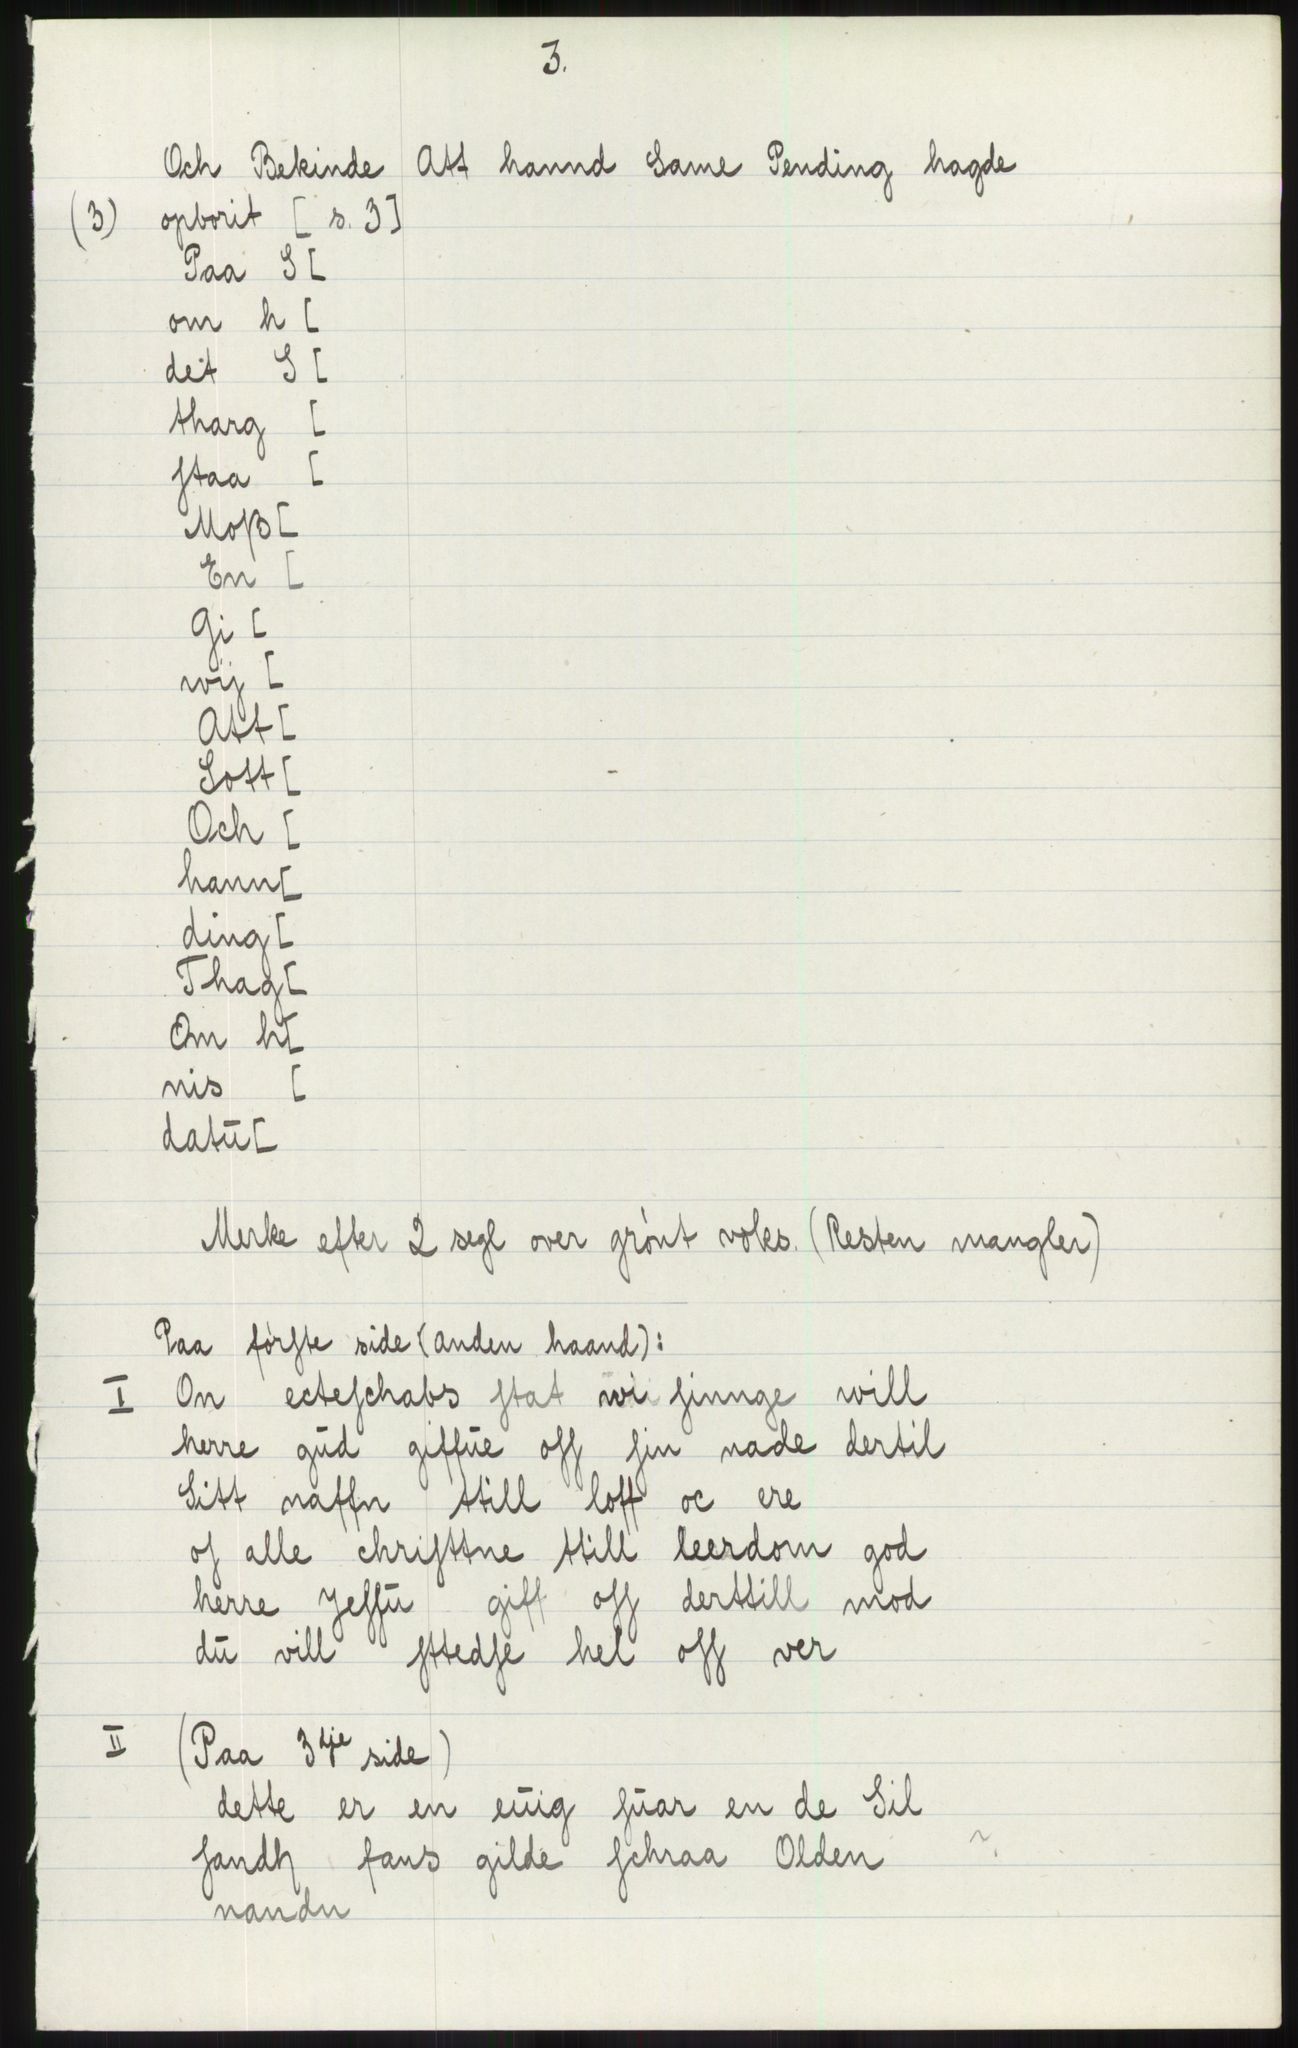 3.
Och Bekinde Att hannd Same Pending hagde
(3) opborit [ s. 3]
Paa S [
om h [
deit S [
tharg [
ſtaa [
Moß [
En [
Gi [
wij [
Att [
Sott [
Och [
hann [
ding [
Thag [
Om h [
nis [
datū [
Merke efter 2 segl over grønt voks. (Resten mangler)
Paa førſte side (anden haand):
I On ecteſchabs ſtat wi ſinnge will
herre gūd giffūe oſſ ſin nade dertil
Sitt naffn ttill loff oc ere
oſ alle chriſttne ttill leerdom god
herre Jeſſū giff oſſ derttill mod
dū vill ſttedſe hel oſſ ver
II (Paa 3dje side)
dette er en eūig ſūar en de Sil
fans gilde ſchraa Olden ?
nandn